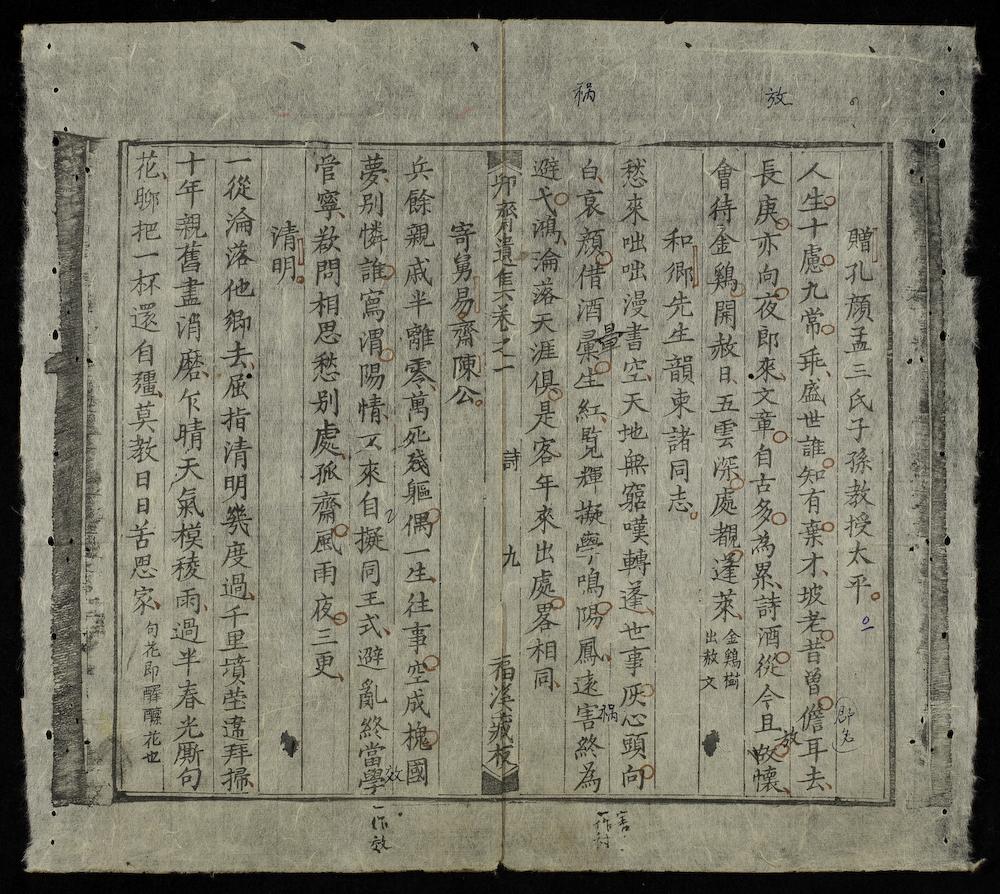 放
祸
贈孔顏孟三氏子孫教授太平
人生十慮九常乖盛世誰知有棄才坡老昔曾儋耳去
長庚亦向夜郎來文章自古多為累詩酒從今且放懷
會待金鷄開赦日五雲深處覩蓬萊金鷄樹出赦文
和鄉先生韻柬諸同志
愁來咄咄漫書空天地無窮嘆轉蓬世事灰心頭向
白衰顏借酒暈生紅覧輝擬學鳴陽鳳遠害終為
避弋鴻淪落天涯俱是客年來出處畧相同
抑齋遺集卷之一 詩 九 福溪藏板
寄舅易齋陳公
兵餘親戚半離零萬死殘軀偶一生往事空成槐國
夢別憐誰寫渭陽情又來自擬同王式避亂終當學
管寧欲問相思愁別處孤齋風雨夜三更
清明
一從淪落他鄉去屈指清明幾度過千里墳塋違拜掃
十年親舊盡消磨乍晴天氣模稜雨過半春光厮句
花聊把一杯還自彊莫教日日苦思家句花即酴醿花也
暈
放
祸
效
害
一作討
一作效